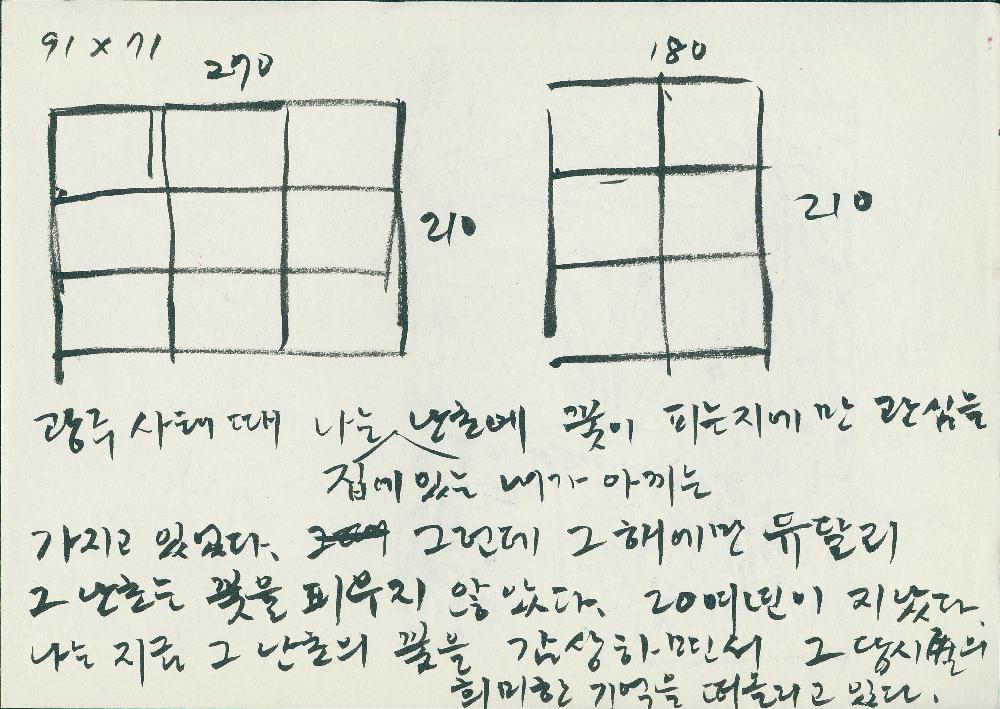 91 x 71
270
180
210
210
광주 사태 때 나는 난초에 꽃이 피는지에만 관심을
집에 있는 내가 아끼는
가지고 있었다. 그런데 그 해에만 유달리
그 난초는 꽃을 피우지 않았다. 20여년이 지났다.
나는 지금 그 난초의 꽃을 감상하면서 그 당시의
희미한 기억을 떠올리고 있다.